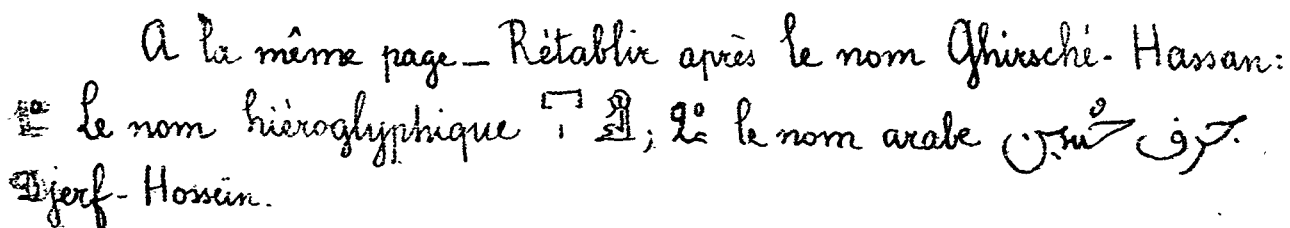 A la même page _ Rétablir après le nom Ghirsché-Hassan:
1º Le nom hiéroglyphique 𓉐𓏤𓁰; 2º le nom arabe جرف حُسين.
Djerf-Hossëin.